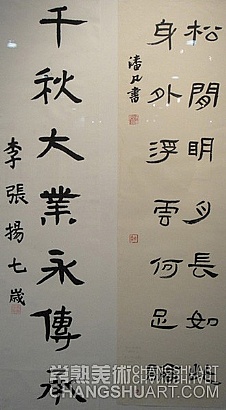 松間明月長如此
身外浮雲何足論
潘凡書
千秋大業永傳承
李張揚七歲
常熟美術
CHANGSHUART.COM